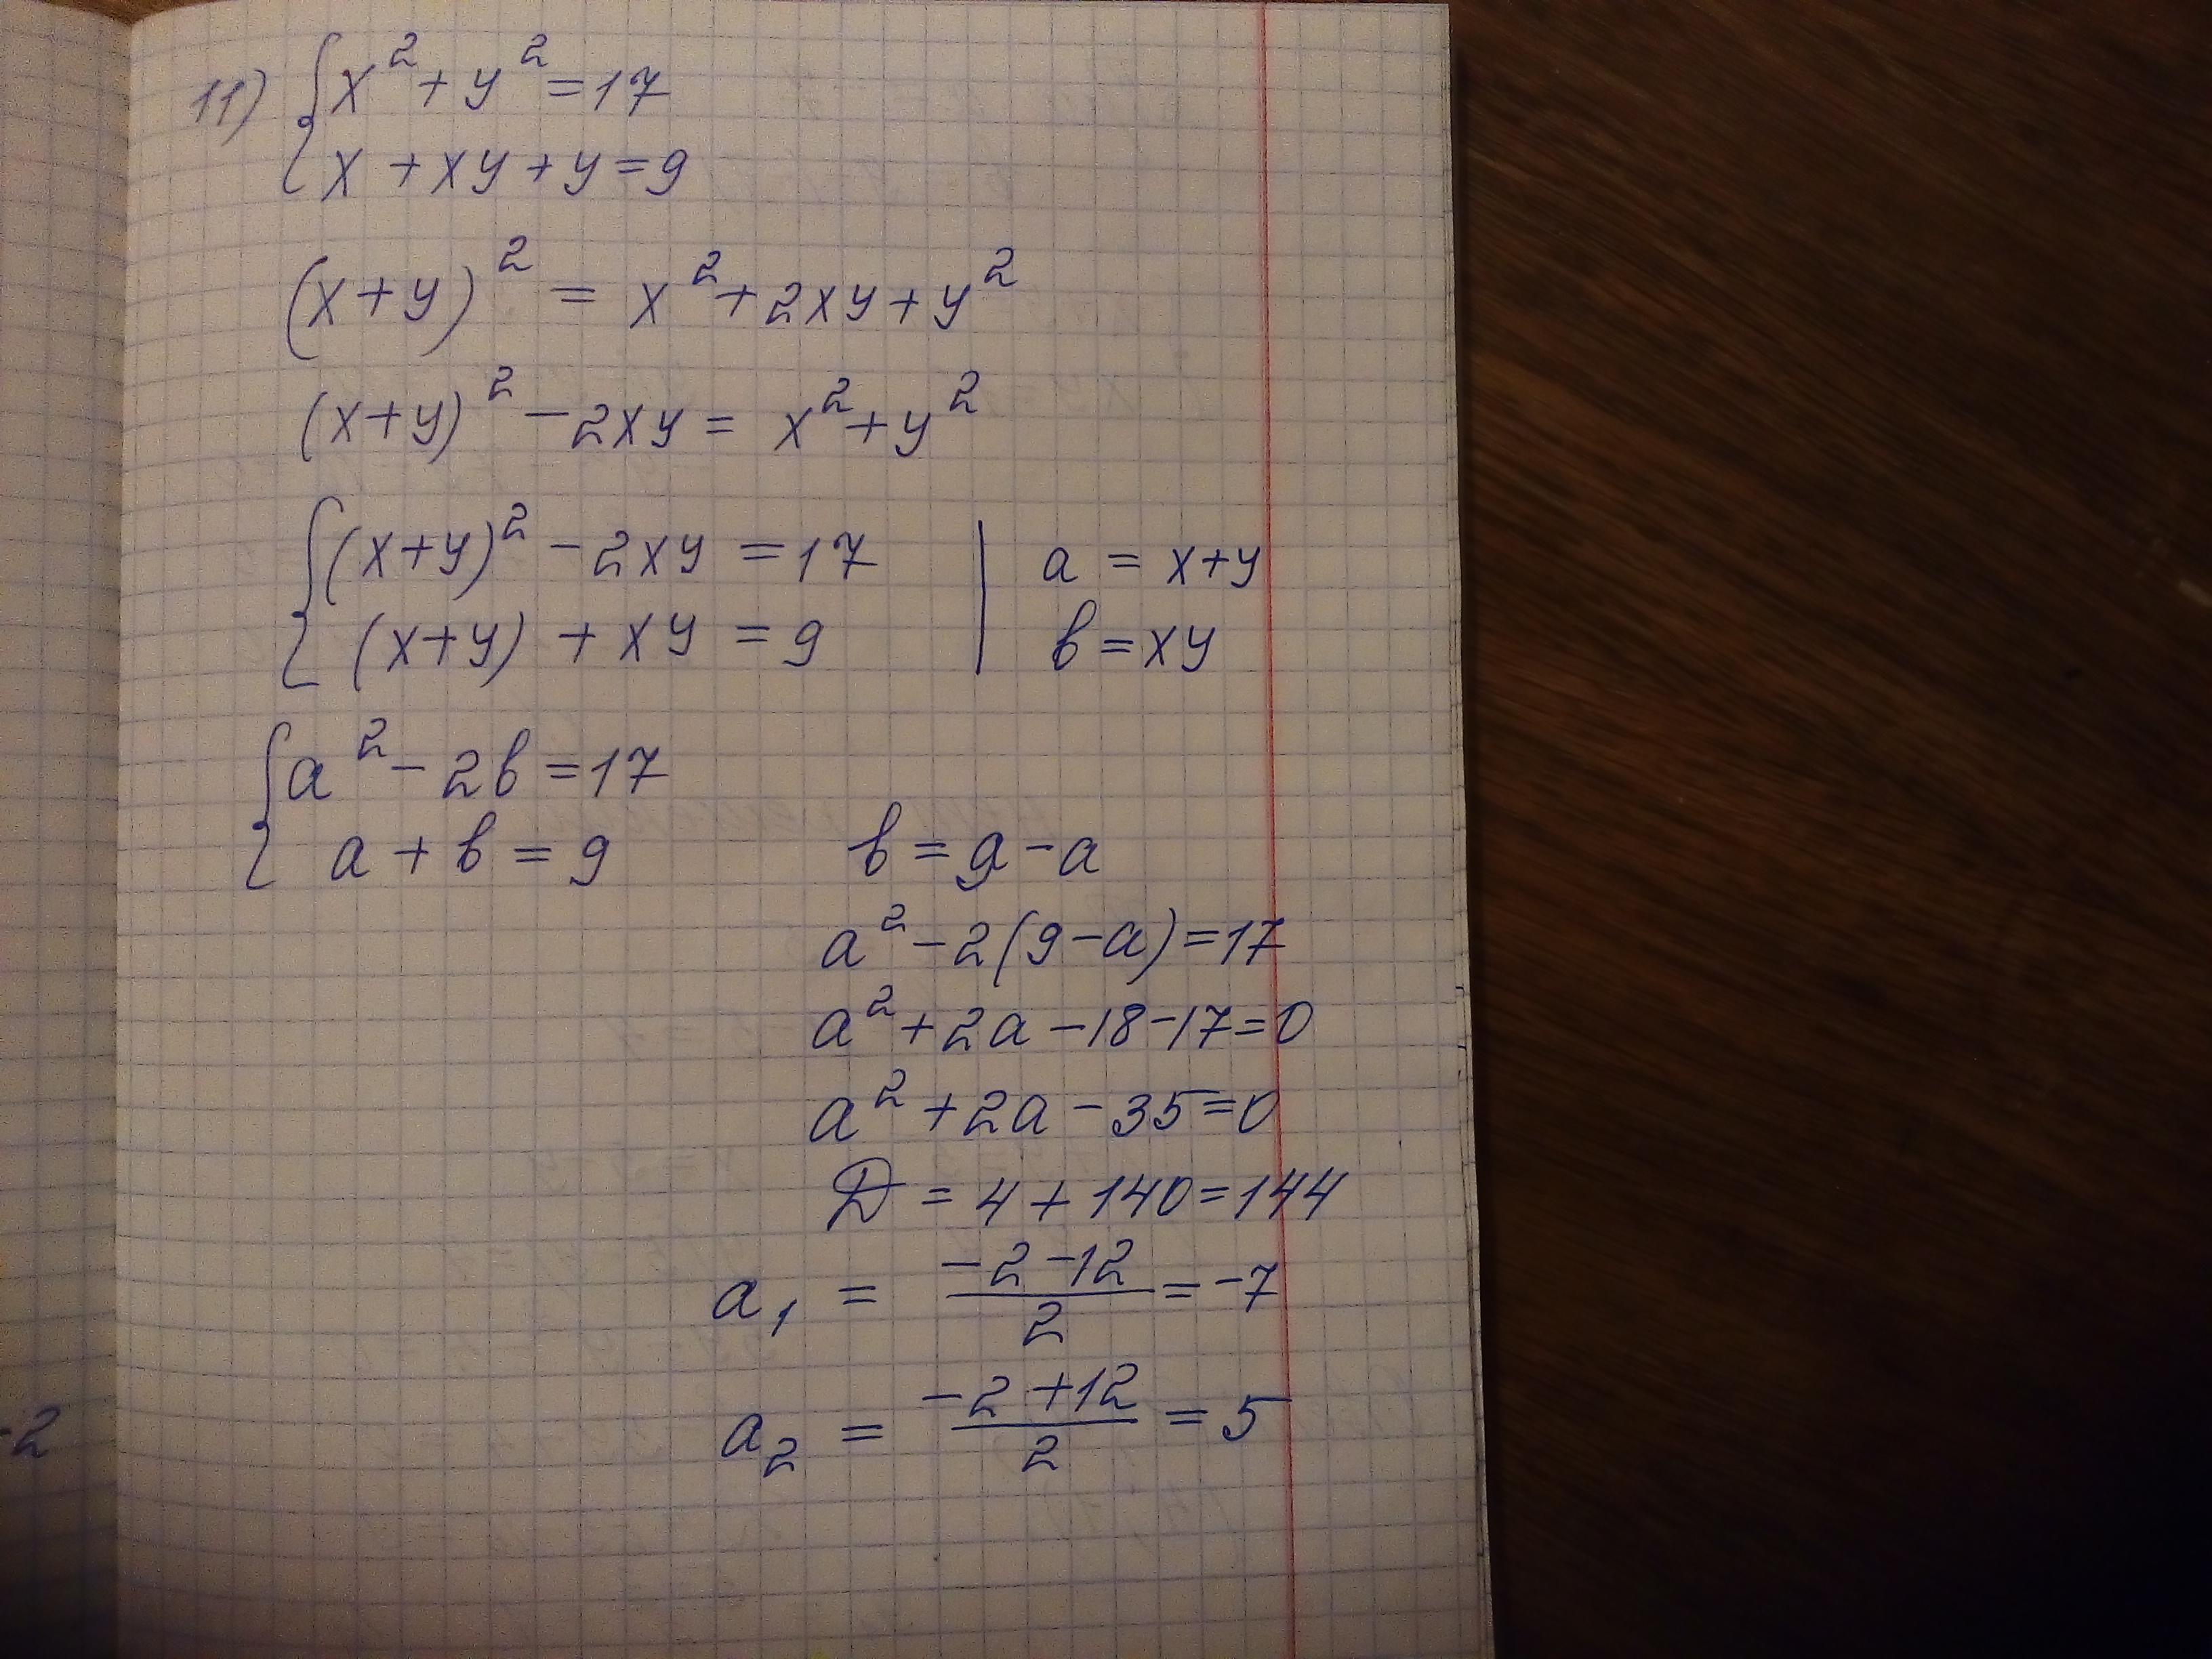 11) { x² + y² = 17
x + xy + y = 9
(x+y)² = x² + 2xy + y²
(x+y)² - 2xy = x² + y²
{ (x+y)² - 2xy = 17 | a = x+y
(x+y) + xy = 9 | в = xy
{ a² - 2в = 17
a + в = 9 в = 9 - a
a² - 2(9-a) = 17
a² + 2a - 18 - 17 = 0
a² + 2a - 35 = 0
D = 4 + 140 = 144
a₁ = (-2-12)/2 = -7
a₂ = (-2+12)/2 = 5
-2